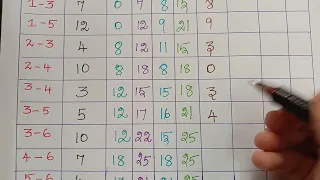 1-3 7 0 7 8 15 8
1-5 12 0 12 9 21 9
2-3 4 8 12 11 15 3
2-4 10 8 18 8 18 0
3-4 3 12 15 15 18 3
3-5 5 12 17 16 21 4
3-6 10 12 22 15 25
4-6 7 18 25 18 25
5-6 4